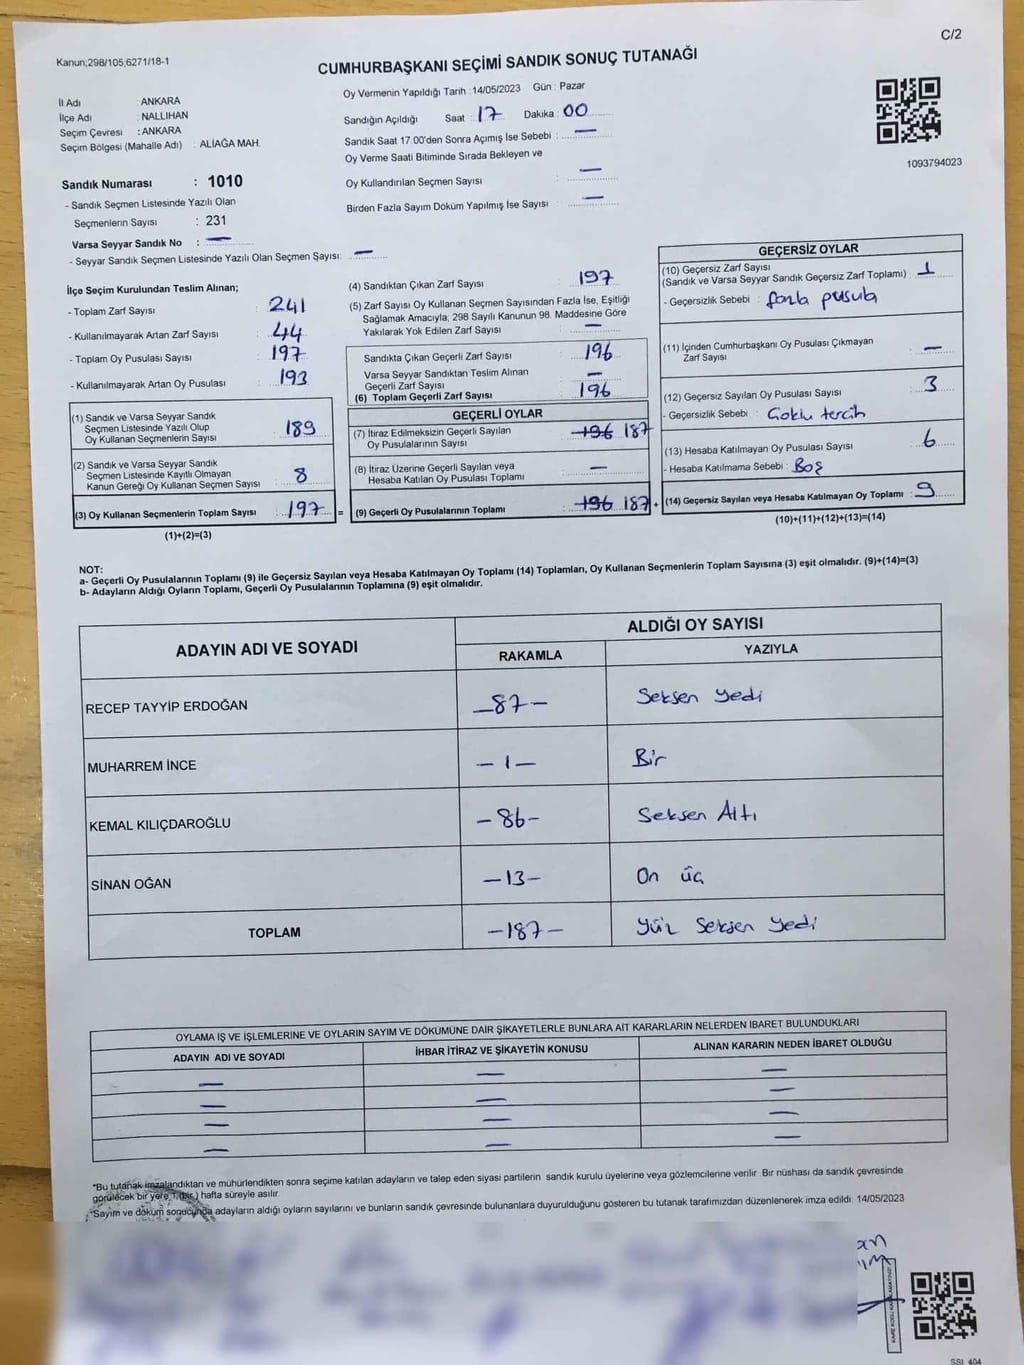 C/2
Kanun;298/105,6271/18-1
CUMHURBAŞKANI SEÇİMİ SANDIK SONUÇ TUTANAĞI
İl Adı : ANKARA
İlçe Adı : NALLIHAN
Seçim Çevresi : ANKARA
Seçim Bölgesi (Mahalle Adı) : ALİAĞA MAH.
Oy Vermenin Yapıldığı Tarih : 14/05/2023 Gün : Pazar
Sandığın Açıldığı Saat : 17 Dakika : 00
Sandık Saat 17.00'den Sonra Açımış İse Sebebi : —
Oy Verme Saati Bitiminde Sırada Bekleyen ve
Oy Kullandırılan Seçmen Sayısı : —
Birden Fazla Sayım Döküm Yapılmış İse Sayısı : —
1093794023
Sandık Numarası : 1010
- Sandık Seçmen Listesinde Yazılı Olan
Seçmenlerin Sayısı : 231
Varsa Seyyar Sandık No : —
- Seyyar Sandık Seçmen Listesinde Yazılı Olan Seçmen Sayısı: —
İlçe Seçim Kurulundan Teslim Alınan;
- Toplam Zarf Sayısı : 241
- Kullanılmayarak Artan Zarf Sayısı : 44
- Toplam Oy Pusulası Sayısı : 197
- Kullanılmayarak Artan Oy Pusulası : 193
(1) Sandık ve Varsa Seyyar Sandık
Seçmen Listesinde Yazılı Olup
Oy Kullanan Seçmenlerin Sayısı : 189
(2) Sandık ve Varsa Seyyar Sandık
Seçmen Listesinde Kayıtlı Olmayan
Kanun Gereği Oy Kullanan Seçmen Sayısı : 8
(3) Oy Kullanan Seçmenlerin Toplam Sayısı : 197 =
(1)+(2)=(3)
(4) Sandıktan Çıkan Zarf Sayısı : 197
(5) Zarf Sayısı Oy Kullanan Seçmen Sayısından Fazla İse, Eşitliği
Sağlamak Amacıyla; 298 Sayılı Kanunun 98. Maddesine Göre
Yakılarak Yok Edilen Zarf Sayısı : —
Sandıkta Çıkan Geçerli Zarf Sayısı : 196
Varsa Seyyar Sandıktan Teslim Alınan
Geçerli Zarf Sayısı : —
(6) Toplam Geçerli Zarf Sayısı : 196
GEÇERLİ OYLAR
(7) İtiraz Edilmeksizin Geçerli Sayılan
Oy Pusulalarının Sayısı : 196 187
(8) İtiraz Üzerine Geçerli Sayılan veya
Hesaba Katılan Oy Pusulası Toplamı : —
(9) Geçerli Oy Pusulalarının Toplamı : 196 187 +
GEÇERSİZ OYLAR
(10) Geçersiz Zarf Sayısı
(Sandık ve Varsa Seyyar Sandık Geçersiz Zarf Toplamı) : 1
- Geçersizlik Sebebi : fazla pusula
(11) İçinden Cumhurbaşkanı Oy Pusulası Çıkmayan
Zarf Sayısı : —
(12) Geçersiz Sayılan Oy Pusulası Sayısı : 3
- Geçersizlik Sebebi : Çoklu tercih
(13) Hesaba Katılmayan Oy Pusulası Sayısı : 6
- Hesaba Katılmama Sebebi : Boş
(14) Geçersiz Sayılan veya Hesaba Katılmayan Oy Toplamı : 9
(10)+(11)+(12)+(13)=(14)
NOT:
a- Geçerli Oy Pusulalarının Toplamı (9) ile Geçersiz Sayılan veya Hesaba Katılmayan Oy Toplamı (14) Toplamları, Oy Kullanan Seçmenlerin Toplam Sayısına (3) eşit olmalıdır. (9)+(14)=(3)
b- Adayların Aldığı Oyların Toplamı, Geçerli Oy Pusulalarının Toplamına (9) eşit olmalıdır.
ADAYIN ADI VE SOYADI
ALDIĞI OY SAYISI
RAKAMLA YAZIYLA
RECEP TAYYİP ERDOĞAN -87- Seksen yedi
MUHARREM İNCE -1- Bir
KEMAL KILIÇDAROĞLU -86- Seksen Altı
SİNAN OĞAN -13- On üç
TOPLAM -187- Yüz Seksen Yedi
OYLAMA İŞ VE İŞLEMLERİNE VE OYLARIN SAYIM VE DÖKÜMÜNE DAİR ŞİKAYETLERLE BUNLARA AİT KARARLARIN NELERDEN İBARET BULUNDUKLARI
ADAYIN ADI VE SOYADI İHBAR İTİRAZ VE ŞİKAYETİN KONUSU ALINAN KARARIN NEDEN İBARET OLDUĞU
— — —
— — —
— — —
— — —
*Bu tutanak imzalandıktan ve mühürlendikten sonra seçime katılan adayların ve talep eden siyasi partilerin sandık kurulu üyelerine veya gözlemcilerine verilir. Bir nüshası da sandık çevresinde
görülecek bir yere 1 (bir) hafta süreyle asılır.
*Sayım ve döküm sonucunda adayların aldığı oyların sayılarını ve bunların sandık çevresinde bulunanlara duyurulduğunu gösteren bu tutanak tarafımızdan düzenlenerek imza edildi. 14/05/2023
SSI 404